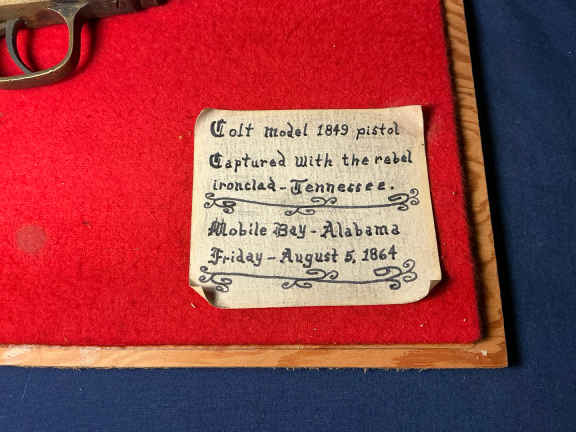 Colt model 1849 pistol
Captured with the rebel
ironclad - Tennessee.
Mobile Bay - Alabama
Friday - August 5, 1864